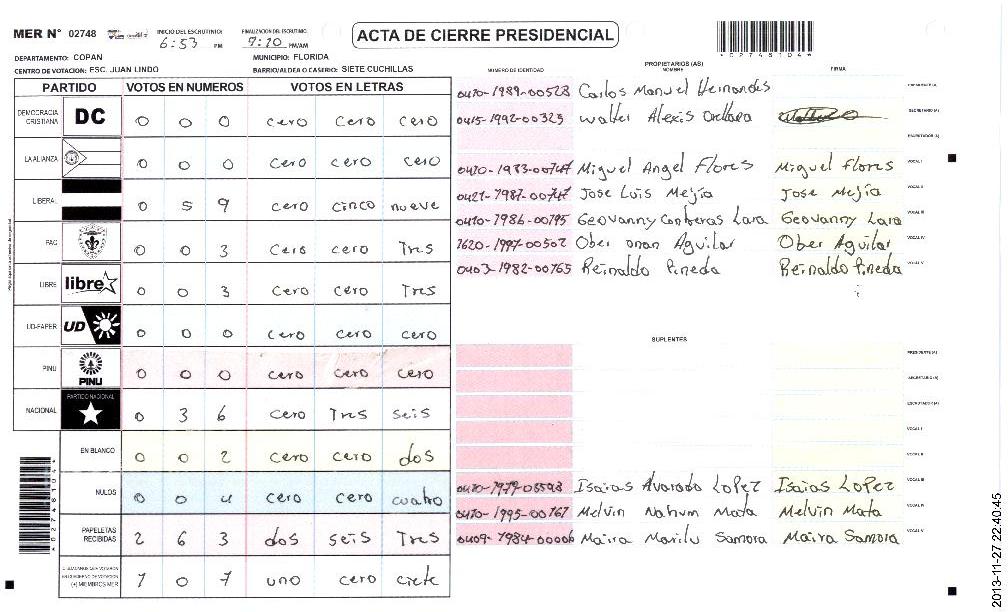 MER N° 02748
INICIO DEL ESCRUTINIO: 6:53 PM
FINALIZACION DEL ESCRUTINIO: 7:20 PM/AM
ACTA DE CIERRE PRESIDENCIAL
02748104
DEPARTAMENTO: COPAN
MUNICIPIO: FLORIDA
CENTRO DE VOTACION: ESC. JUAN LINDO
BARRIO/ALDEA O CASERIO: SIETE CUCHILLAS
PARTIDO VOTOS EN NUMEROS VOTOS EN LETRAS
DEMOCRACIA CRISTIANA DC 0 0 0 cero cero cero
LA ALIANZA 0 0 0 cero cero cero
LIBERAL 0 5 9 cero cinco nueve
PAC 0 0 3 cero cero Tres
LIBRE libre 0 0 3 cero cero Tres
UD-FAPER UD 0 0 0 cero cero cero
PINU PINU 0 0 0 cero cero cero
NACIONAL PARTIDO NACIONAL 0 3 6 cero Tres seis
EN BLANCO 0 0 2 cero cero dos
NULOS 0 0 4 cero cero cuatro
PAPELETAS RECIBIDAS 2 6 3 dos seis Tres
CIUDADANOS QUE VOTARON EN CUADERNO DE VOTACION (+) MIEMBROS MER 1 0 7 uno cero ciete
NUMERO DE IDENTIDAD PROPIETARIOS (AS) NOMBRE FIRMA
0410-1989-00528 Carlos Manuel Hernandes
0415-1992-00323 Walter Alexis Orellana SECRETARIO (A)
ESCRUTADOR (A)
0420-1983-00747 Miguel Angel Flores Miguel flores VOCAL I
0421-1987-00747 Jose Luis Mejía Jose Mejía VOCAL II
0410-1986-00795 Geovanny Contreras Lara Geovanny Lara VOCAL III
1620-1997-00502 Ober onan Aguilar Ober Aguilar VOCAL IV
0403-1982-00765 Reinaldo Pineda Reinaldo Pineda VOCAL V
SUPLENTES
PRESIDENTE (A)
SECRETARIO (A)
ESCRUTADOR (A)
VOCAL I
VOCAL II
Isaias Alvarado Lopez Isaias Lopez VOCAL III
0410-1995-00767 Melvin Nahum Mata Melvin Mata VOCAL IV
0409-1984-00006 Maira Marilu Samora Maira Samora VOCAL V
2013-11-27 22:40:45